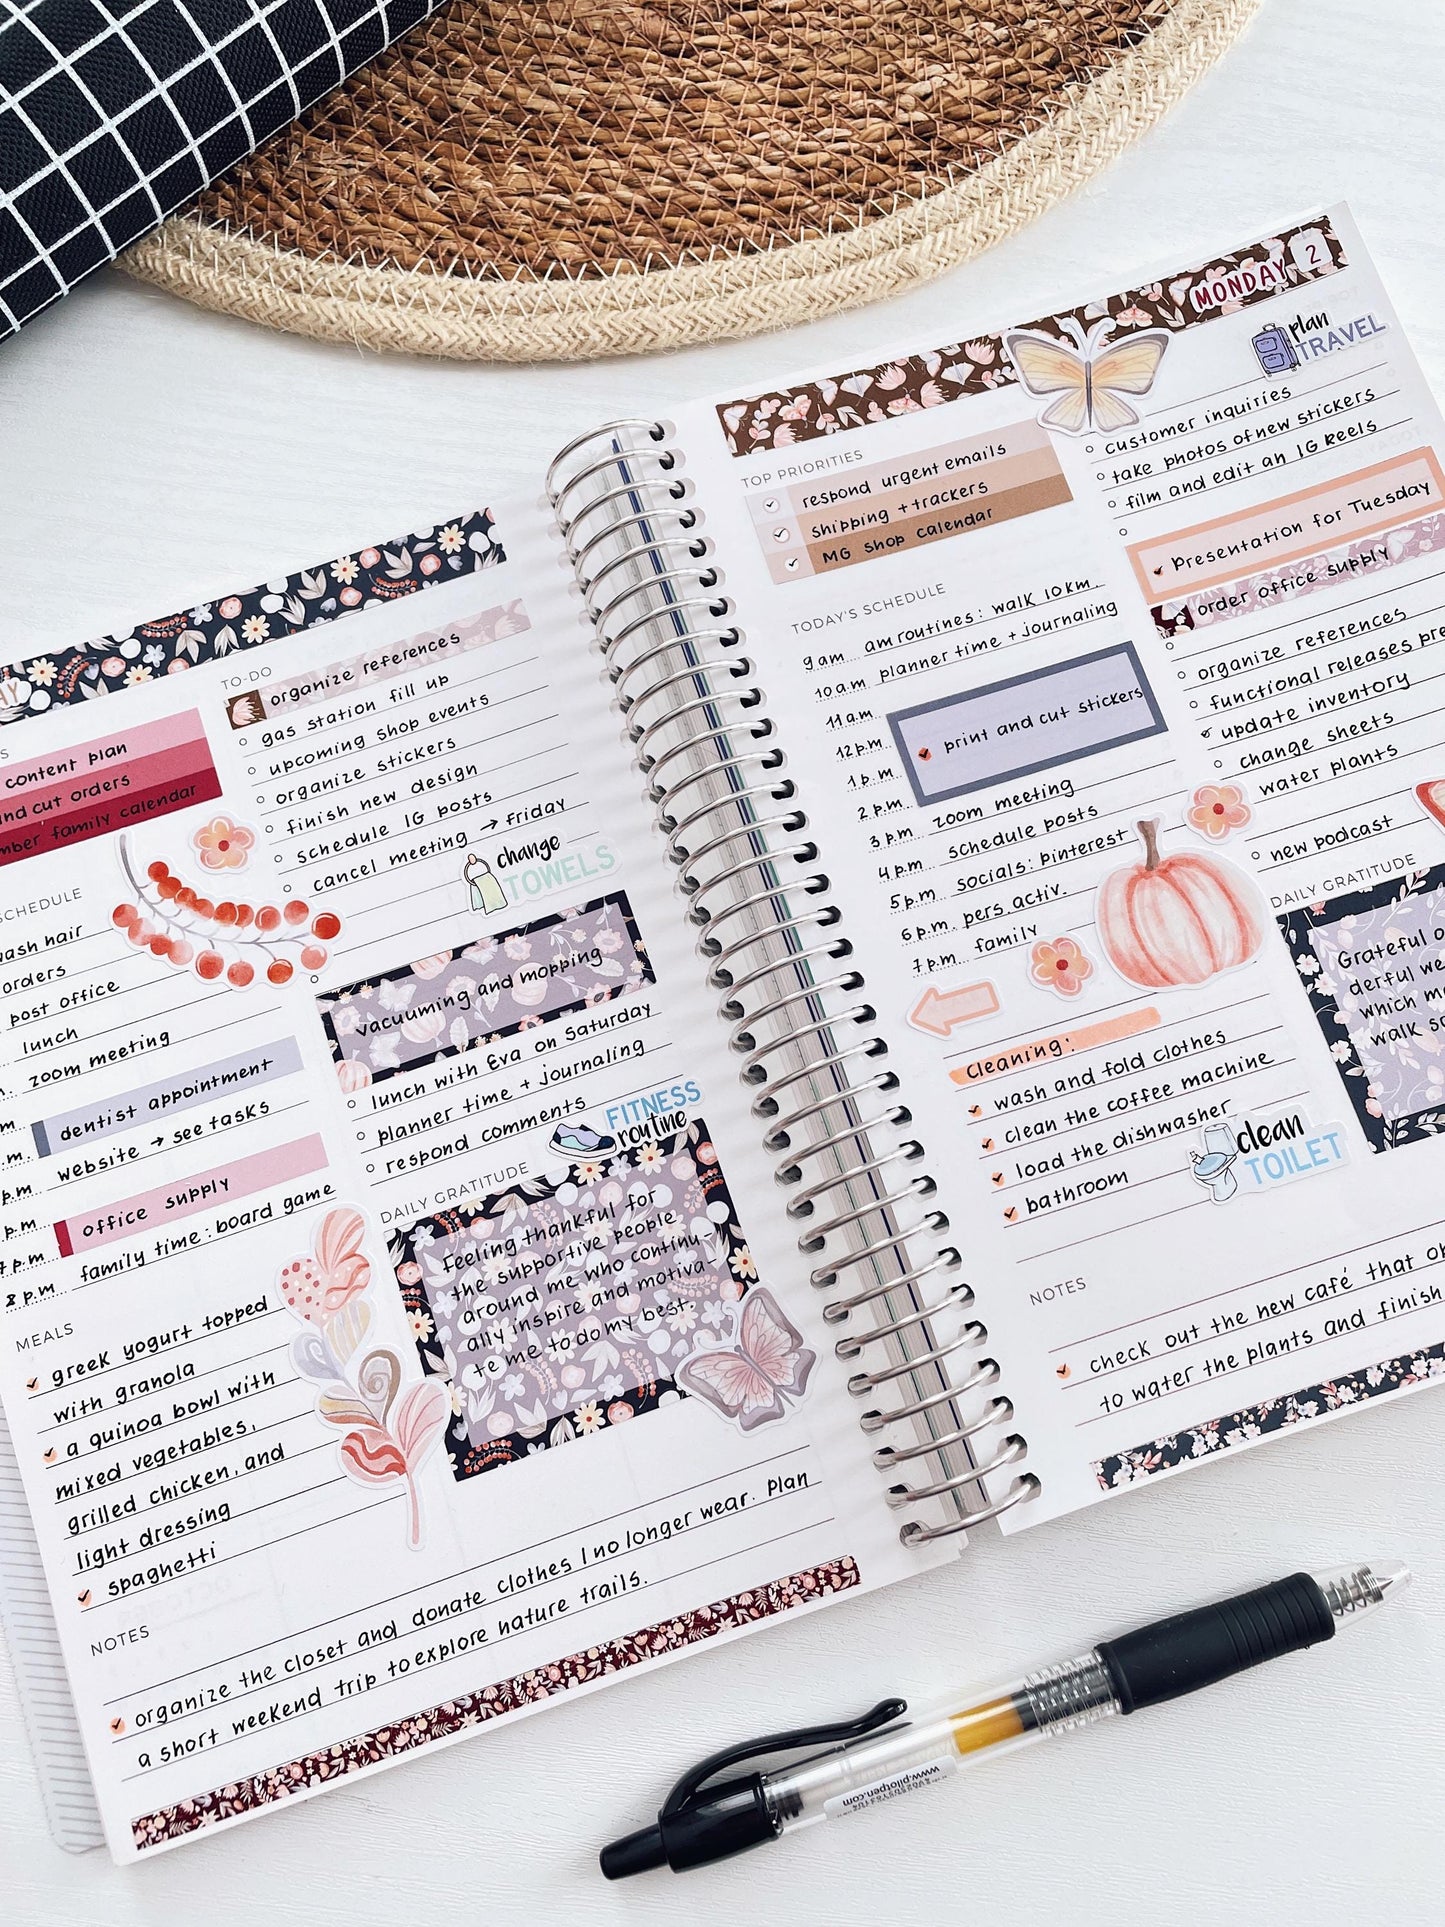 AY
S
content plan
nd cut orders
mber family calendar
SCHEDULE
ash hair
orders
post office
lunch
zoom meeting
dentist appointment
website → see tasks
office supply
family time: board game
8 p.m.
MEALS
greek yogurt topped
with granola
a quinoa bowl with
mixed vegetables,
grilled chicken, and
light dressing
spaghetti
TO-DO
organize references
gas station fill up
upcoming shop events
organize stickers
finish new design
schedule IG posts
cancel meeting → friday
change
TOWELS
vacuuming and mopping
lunch with Eva on Saturday
planner time + journaling
respond comments
FITNESS
routine
DAILY GRATITUDE
Feeling thankful for
the supportive people
around me who continu-
ally inspire and motiva-
te me to do my best.
NOTES
organize the closet and donate clothes I no longer wear. Plan
a short weekend trip to explore nature trails.
MONDAY 2
TOP PRIORITIES
respond urgent emails
shipping + trackers
MG shop calendar
TODAY'S SCHEDULE
9 am am routines: walk 10km.
10 a.m planner time + journaling
11 a.m
12 p.m
print and cut stickers
1 p.m
2 p.m.
3 p.m zoom meeting
4 p.m schedule posts
5 p.m socials: pinterest
6 p.m. pers. activ.
7 p.m family
Cleaning:
wash and fold clothes
clean the coffee machine
load the dishwasher
bathroom
clean
TOILET
plan
TRAVEL
customer inquiries
take photos of new stickers
film and edit an IG Reels
Presentation for Tuesday
order office supply
organize references
functional releases pre
update inventory
change sheets
water plants
new podcast
DAILY GRATITUDE
Grateful o
derful we
which m
walk s
NOTES
check out the new café that o
to water the plants and finish
www.pilotpen.com